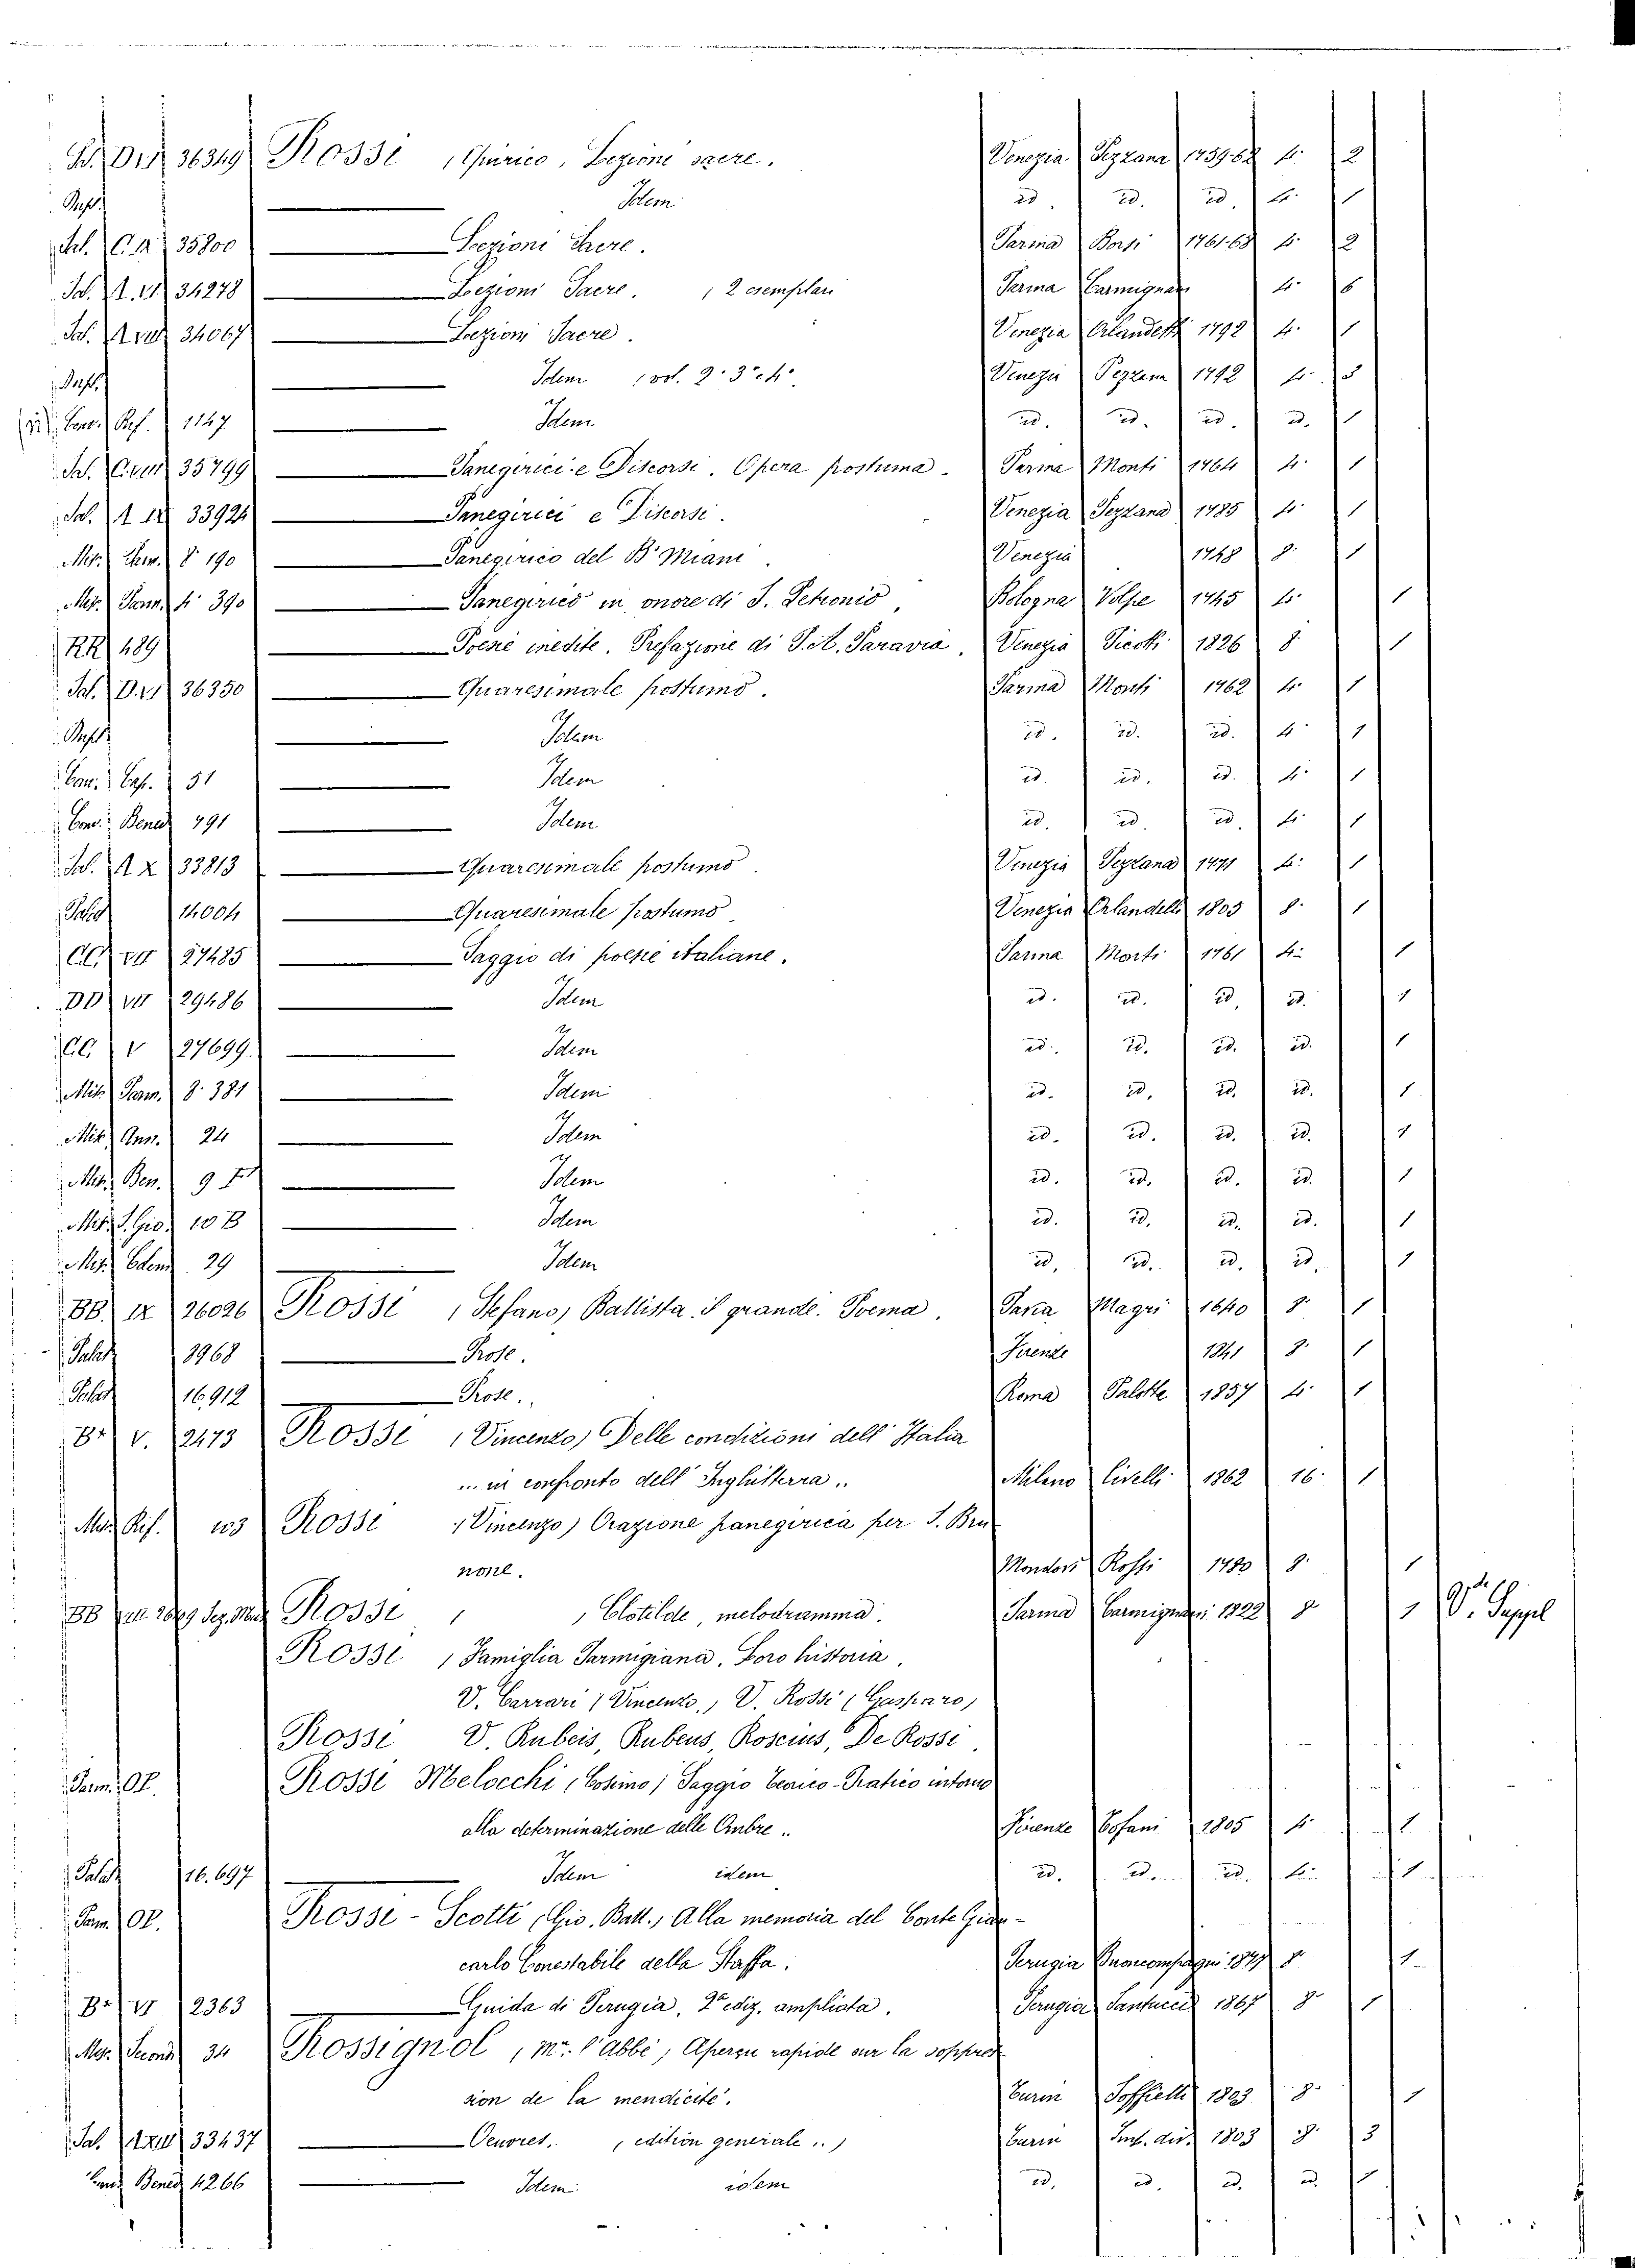 Sal. D.VI 36349 Rossi (Quirico) Lezioni sacre. Venezia Pezzana 1759-62 4. 2
Idem id. id. id. 4. 1
Sal. C. IX 35800 Lezioni Sacre. Parma Borsi 1761-63 4. 2
Sal. A. VI 34278 Lezioni Sacre. (2 esemplari Parma Carmignani 4. 6
Sal. A VIII 34067 Lezioni Sacre. Venezia Orlandelli 1792 4. 1
Idem (vol. 2° 3° e 4° Venezia Pezzana 1792 4. 3
Conv. Rif. 1147 Idem id. id. id. id. 1
Sal. C. VIII 35799 Panegirici e Discorsi. Opera postuma. Parma Monti 1764 4. 1
Sal. A IX 33924 Panegirici e Discorsi. Venezia Pezzana 1785 4. 1
8° 190 Panegirico del B. Miani. Venezia 1748 8. 1
Misc. Parm. 4° 390 Panegirico in onore di S. Petronio, Bologna Volpe 1745 4. 1
RR 489 Poesie inedite. Prefazione di P. A. Paravia. Venezia Picotti 1826 8 1
Sal. D. VI 36350 Quaresimale postumo. Parma Monti 1762 4. 1
Idem id. id. id. 4 1
Con. Cap. 51 Idem id. id. id. 4. 1
Conv. Bened 791 Idem id. id. id. 4. 1
Sal. A X 33813 Quaresimale postumo. Venezia Pezzana 1771 4. 1
Palat 14004 Quaresimale postumo. Venezia Orlandelli 1803 8. 1
CC VII 27485 Saggio di poesie italiane. Parma Monti 1761 4. 1
DD VII 29486 Idem id. id. id. id. 1
CC V 27699. Idem id. id. id. id. 1
Mis. Parm. 8. 381 Idem id. id. id. id. 1
Mis. Ann. 24 Idem id. id. id. id. 1
Mis. Ben. 9 Idem id. id. id. id. 1
Mis. S. Gio. 10 B Idem id. id. id. id. 1
Mis. 29 Idem id. id. id. id. 1
BB. IX 26026 Rossi (Stefano) Ballista il grande. Poema. Pavia Magri 1640 8. 1
Palat 8968 Prose. Firenze 1841 8. 1
Palat 16,912 Prose. Roma Palotte 1857 4. 1
Br. V. 2473 Rossi (Vincenzo) Delle condizioni dell' Italia
... in confronto dell' Inghilterra.. Milano Civelli 1862 16. 1
Mis. Rif. 103 Rossi (Vincenzo) Orazione panegirica per S. Bru
none. Mondovì Rossi 1780 8. 1
BB Rossi ( ) Clotilde, melodramma. Parma Carmignani 1822 8 1 V. Suppl
Rossi (Famiglia Parmigiana. Loro historia.
V. Carrari (Vincenzo), V. Rossi (Gasparo)
Rossi V. Rubeis, Rubeus, Roscius, De Rossi.
Parm. OP. Rossi Melocchi (Cosimo) Saggio Teorico-Pratico intorno
alla determinazione delle Ombre.. Firenze Tofani 1805 4. 1
Palat 16.697 Idem idem id. id. id. 4. 1
Parm. OP. Rossi-Scotti (Gio. Batt.) Alla memoria del Conte Gian-
carlo Conestabile della Staffa. Perugia Buoncompagni 1877 8. 1
Br. VI 2363 Guida di Perugia, 2ª ediz. ampliata. Perugia Santucci 1867 8. 1
34 Rossignol (Mr. l'abbé) Aperçu rapide sur la suppres
sion de la mendicité. Turin Soffietti 1803 8. 1
Sal. 33437 Oeuvres. (edition generale..) Turin Imp. dip. 1803 8. 3
Bened 4266 Idem idem id. id. id. id.